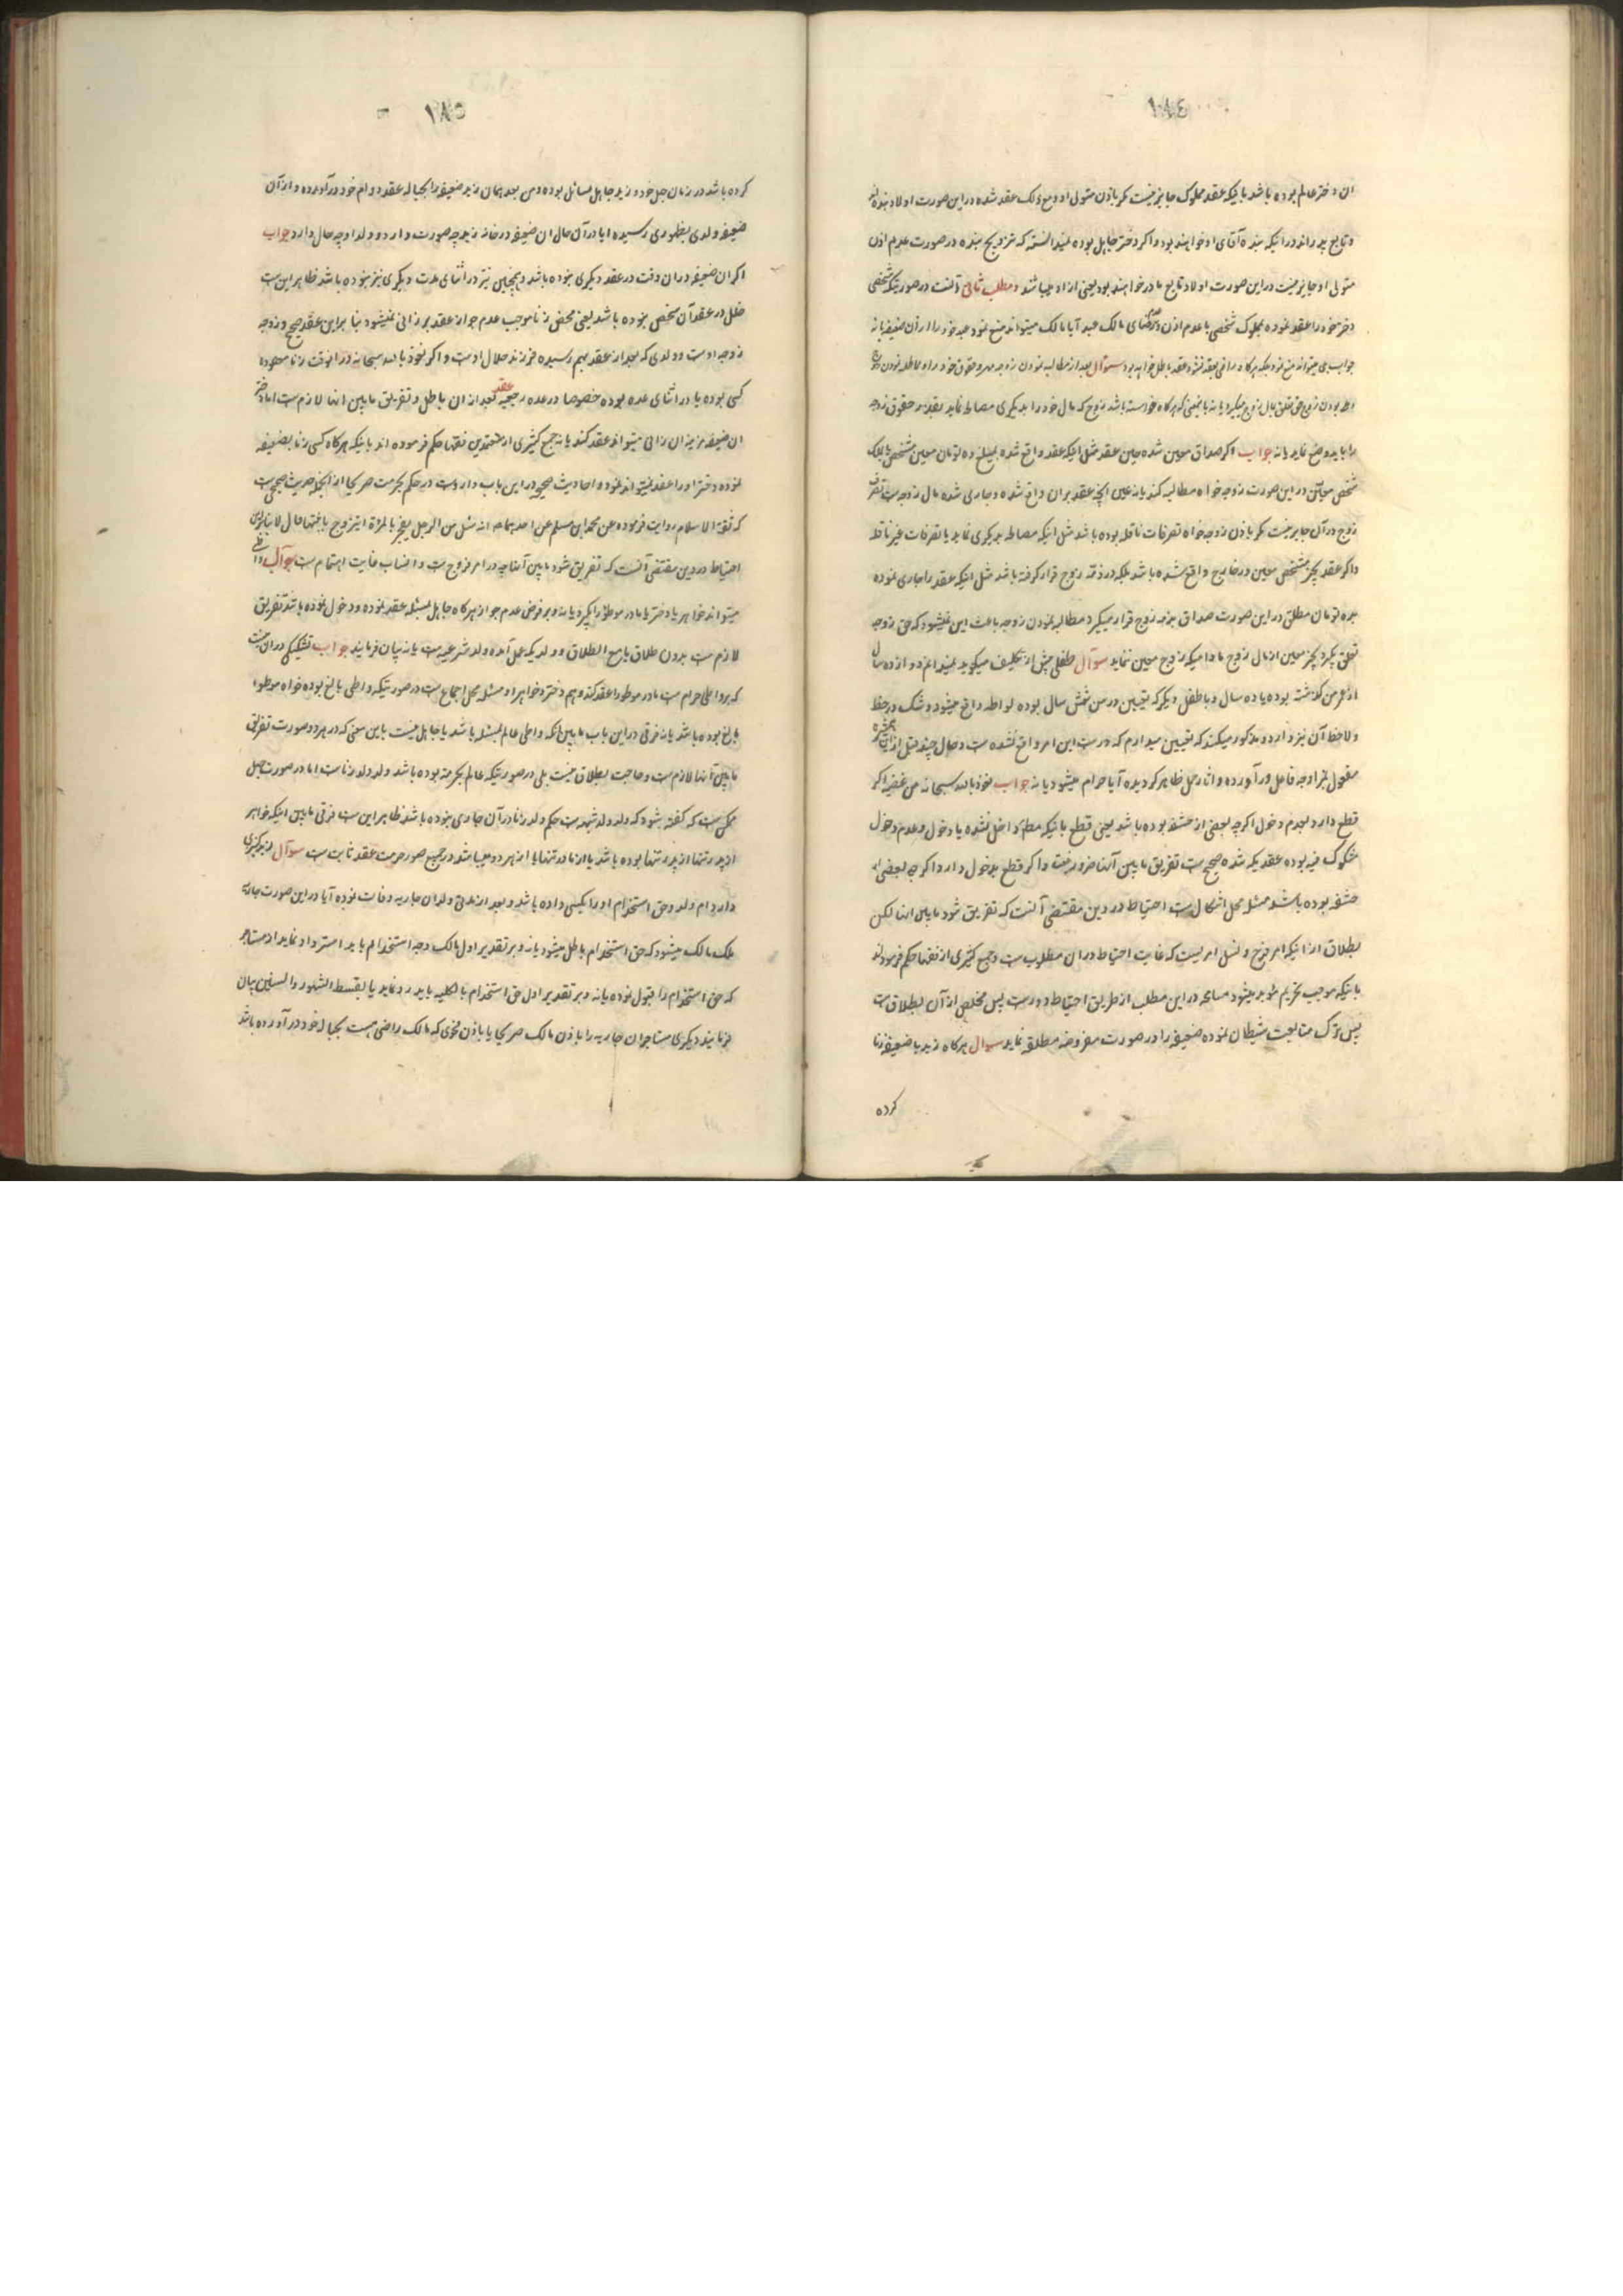 ١٨٤
ان دختر عالم بوده باشد باینکه عقد مملوک جایز نیست مکر باذن متولی او ومع ذلک عقد شده در این صورت اولاد بنده اند
و تابع پدراند در اینکه بنده آقای او خواهند بود و اکر دختر جاهل بوده نمیدانسته که تزویج بنده در صورت عدم اذن
متولی او جایز نیست در این صورت اولاد تابع مادر خواهند بود یعنی ازاد میباشند و مطلب ثانی آنست در صورتیکه شخصی
دختر خود را عقد نموده بمملوک شخصی با عدم اذن و رضای مالک عبد آیا مالک میتواند منع نمود عبد خود را از ان ضعیفه یا نه
جواب بلی میتواند منع نمود بلکه هرکاه راضی بعقد نشود عقد باطل خواهد بود سؤال بعد از مطالبه نمودن زوجه مهر و حقوق خود را و مماطله نمودن زوج
زوج حق تعلق بمال زوج میکیرد یا نه بانیمعنی که هرکاه خواسته باشد زوج که مال خود را بدیکری مصالحه نماید بقدر حقوق زوجه
را باید وضع نماید یا نه جواب اکر صداق معین شده حین عقد مثل اینکه عقد واقع شده بمبلغ ده تومان معین مشخص یا بملک
مشخص معین در این صورت زوجه خواه مطالبه کند یا نه عین آنچه عقد بران واقع شده و جاری شده مال زوجه است تصرف
زوج در آن جایز نیست مکر باذن زوجه خواه تصرفات ناقله بوده باشد مثل اینکه مصالحه بدیکری نماید یا تصرفات غیر ناقله
و اکر عقد بچیز مشخص معین در خارج واقع نشده باشد بلکه در ذمه زوج قرار کرفته باشد مثل اینکه عقد را جاری نموده
بده تومان مطلق در این صورت صداق بذمه زوج قرار میکیرد مطالبه نمودن زوجه باعث این نمیشود که حق زوجه
تعلق بکیرد بچیز معین از مال زوج مادامیکه زوج معین ننماید سوآل طفلی پیش از تکلیف میکوید نمیدانم دوازده سال
از عمر من کذشته بوده یا ده سال و با طفل دیکر که یقین در سن شش سال بوده لواطه واقع میشود و شک در حفظ
و لاحفظ آن نیز دارد و مذکور میکند که یقین میدارم که درست این امر واقع نشده است و حال چند قبل از این همشیره
مفعول بمزاوجه فاعل در آورده و اثار حمل ظاهر کردیده آیا حرام میشود یا نه جواب نعوذ بالله سبحانه من غضبه اکر
قطع دارد بعدم دخول اکرچه بعضی از حشفه بوده باشد یعنی قطع باینکه مطلقا داخل نشده یا دخول و عدم دخول
مشکوک فیه بوده عقدیکه شده صحیح است تفریق مابین آنها ضرور نیست و اکر قطع بدخول دارد اکرچه بعضی از
حشفه بوده باشد مسئله محل اشکال است احتیاط در دین مقتضی آنست که تفریق شود مابین اینها لکن
بطلاق از انیکه امر فروج و نسل امریست که غایت احتیاط در ان مطلوب است و جمع کثیری از فقها حکم فرموده‌اند
باینکه موجب تحریم مؤبد میشود مسامحه در این مطلب از طریق احتیاط دور است پس مخلص از آن بطلاق است
پس ترک متابعت شیطان نموده ضعیفه را در صورت مفروضه مطلقه نماید سوال هرکاه زید با ضعیفه زنا
کرده
١٨٥
کرده باشد در زمان جهل خود و زید جاهل بمسائل بوده و من بعد همان زید ضعیفه را بحباله عقد دوام خود در آورده و از آن
ضعیفه ولدی بظهوری رسیده ایا در آن حال ان ضعیفه در خانه زید چه صورت دارد و ولد او چه حال دارد جواب
اکر ان ضعیفه در ان وقت در عقد دیکری نبوده باشد و همچنین نیز در اثنای عدت دیکری نیز نبوده باشد ظاهر این است
خلل در عقد آن شخص نبوده باشد یعنی محض زنا موجب عدم جواز عقد بر زانی نمیشود بنا براین عقد صحیح و زوجه
زوجه اوست و ولدی که بعد از عقد بهم رسیده فرزند حلال اوست و اکر نعوذ بالله سبحانه در انوقت زنا معقوده
کسی بوده یا در اثنای عده بوده خصوصا در عده رجعیه عقد بعد از ان باطل و تفریق مابین انها لازم است اما دختر
ان ضعیفه مزنیه ان زانی میتواند عقد کند یا نه جمع کثیری از معتمدین فقها حکم فرموده اند باینکه هرکاه کسی زنا بضعیفه
نموده دختر او را عقد نمیتواند نمود و احادیث صحیحه در این باب وارد است در حکم بحرمت صریحا از انجمله حدیث صحیحی است
که ثقة الاسلام روایت فرموده عن محمد ابن مسلم عن احدهما انه سئل عن الرجل یفجر بالمراة ایتزوج بابنتها قال لا بنابراین
احتیاط در دین مقتضی آنست که تفریق شود مابین آنها چه در امر فروج است و انساب غایت اهتمام است سوآل واطی
میتواند خواهر یا دختر یا مادر موطؤ را بکیرد یا نه و بر فرض عدم جواز هرکاه جاهل بمسئله عقد نموده و دخول نموده باشد تفریق
لازم است بدون طلاق یا مع الطلاق و ولدیکه بعمل آمده ولد شرعیست یا نه بیان فرمایند جواب تشکیکی در این نیست
که بر واطی حرام است مادر موطؤ را عقد کند و هم دختر و خواهر او مسئله محل اجماع است در صورتیکه واطی بالغ بوده خواه موطوء
بالغ بوده باشد یا نه فرقی در این باب مابین انکه واطی عالم بمسئله باشد یا جاهل نیست باین معنی که در هر دو صورت تفریق
مابین آنها لازم است و حاجت بطلاق نیست بلی در صورتیکه عالم بحرمة بوده باشد ولد ولد زناست اما در صورت جهل
ممکن است که کفته شود که ولد ولد شبهه است حکم ولد زنا در آن جاری نبوده باشد ظاهر این است فرقی مابین اینکه خواهر
از پدر تنها بوده باشد یا از مادر تنها یا از هر دو میباشد در جمیع صور حرمت عقد ثابت است سوآل زید کنیزی
دارد ام ولد و حق استخدام او را بکسی داده باشد و بعد از مدتی ولد ان جاریه وفات نموده آیا در این صورت جاریه
ملک مالک میشود که حق استخدام باطل میشود یا نه و بر تقدیر اول مالک وجه استخدام باید استرداد نماید از مستاجر
که حق استخدام را قبول نموده یا نه و بر تقدیر اول حق استخدام بالکلیه باید رد نماید یا بقسط الشهور و السنین بیان
فرمایند دیکری مستاجران جاریه را باذن مالک صریحا یا باذن فحوی که مالک راضی هست بحباله خود در آورده باشد